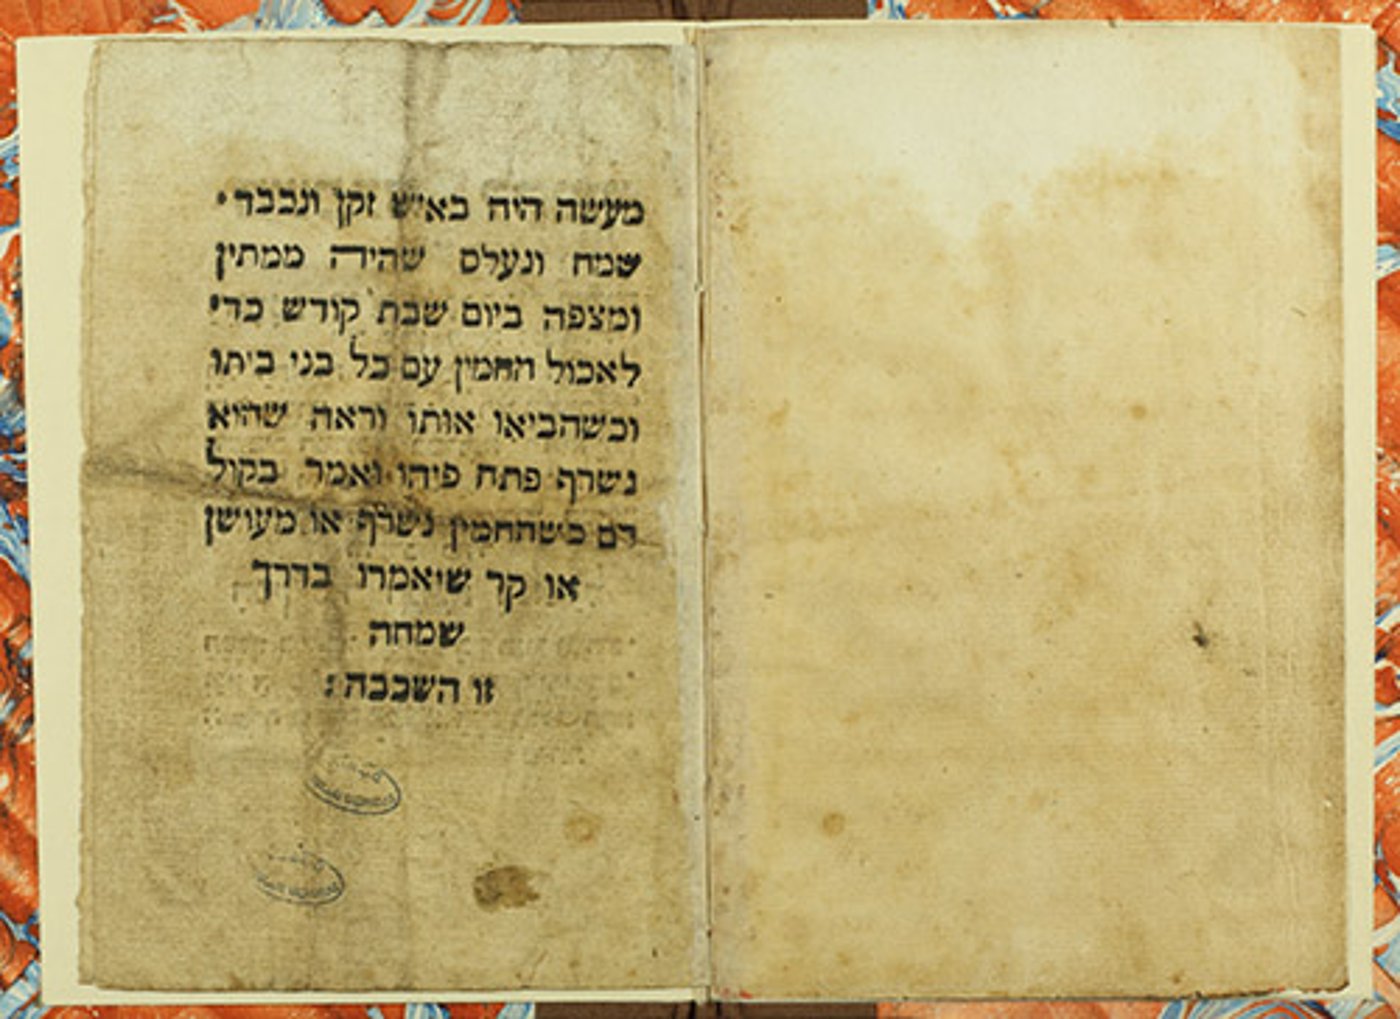 מעשה היה באיש זקן ונכבד·
שמח ונעלס שהיה ממתין
ומצפה ביום שבת קודש כדי
לאכול החמין עם כל בני ביתו
וכשהביאו אותו וראה שהוא
נשרף פתח פיהו ואמר בקול
רם כשהחמין נשרף או מעושן
או קר שיאמרו בדרך
שמחה
זו השכבה: